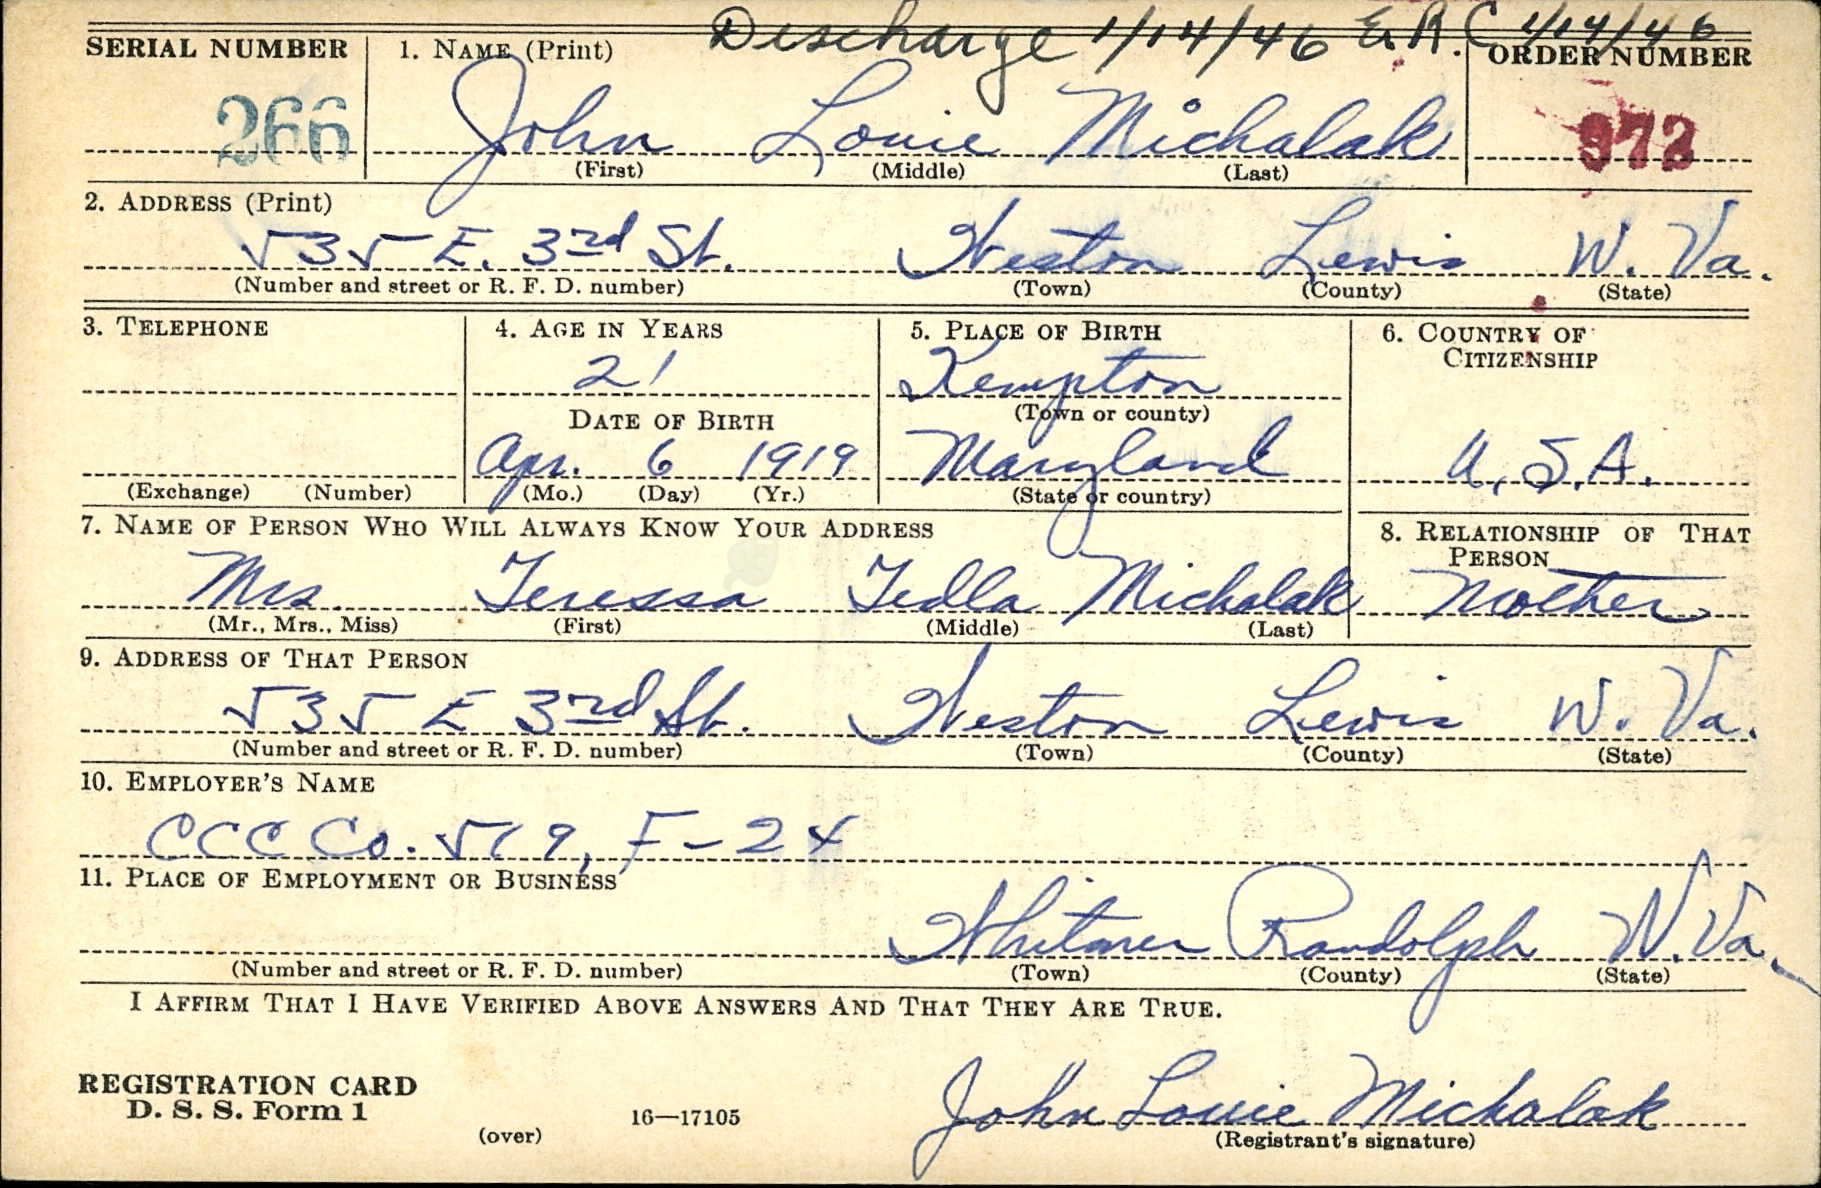 Discharge 1/14/46 E.R.C 1/14/46
SERIAL NUMBER 1. NAME (Print) ORDER NUMBER
266 John Louie Michalak 972
(First) (Middle) (Last)
2. ADDRESS (Print)
535 E. 3rd St. Weston Lewis W. Va.
(Number and street or R. F. D. number) (Town) (County) (State)
3. TELEPHONE 4. AGE IN YEARS 5. PLACE OF BIRTH 6. COUNTRY OF CITIZENSHIP
21 Kempton
DATE OF BIRTH (Town or county)
Apr. 6 1919 Maryland U.S.A.
(Exchange) (Number) (Mo.) (Day) (Yr.) (State or country)
7. NAME OF PERSON WHO WILL ALWAYS KNOW YOUR ADDRESS 8. RELATIONSHIP OF THAT PERSON
Mrs. Teressa Tedla Michalak Mother
(Mr., Mrs., Miss) (First) (Middle) (Last)
9. ADDRESS OF THAT PERSON
535 E 3rd St. Weston Lewis W. Va.
(Number and street or R. F. D. number) (Town) (County) (State)
10. EMPLOYER'S NAME
CCC Co. 519, F-24
11. PLACE OF EMPLOYMENT OR BUSINESS
Whitmer Randolph W. Va.
(Number and street or R. F. D. number) (Town) (County) (State)
I AFFIRM THAT I HAVE VERIFIED ABOVE ANSWERS AND THAT THEY ARE TRUE.
REGISTRATION CARD
D. S. S. Form 1 16—17105 John Louie Michalak
(over) (Registrant's signature)